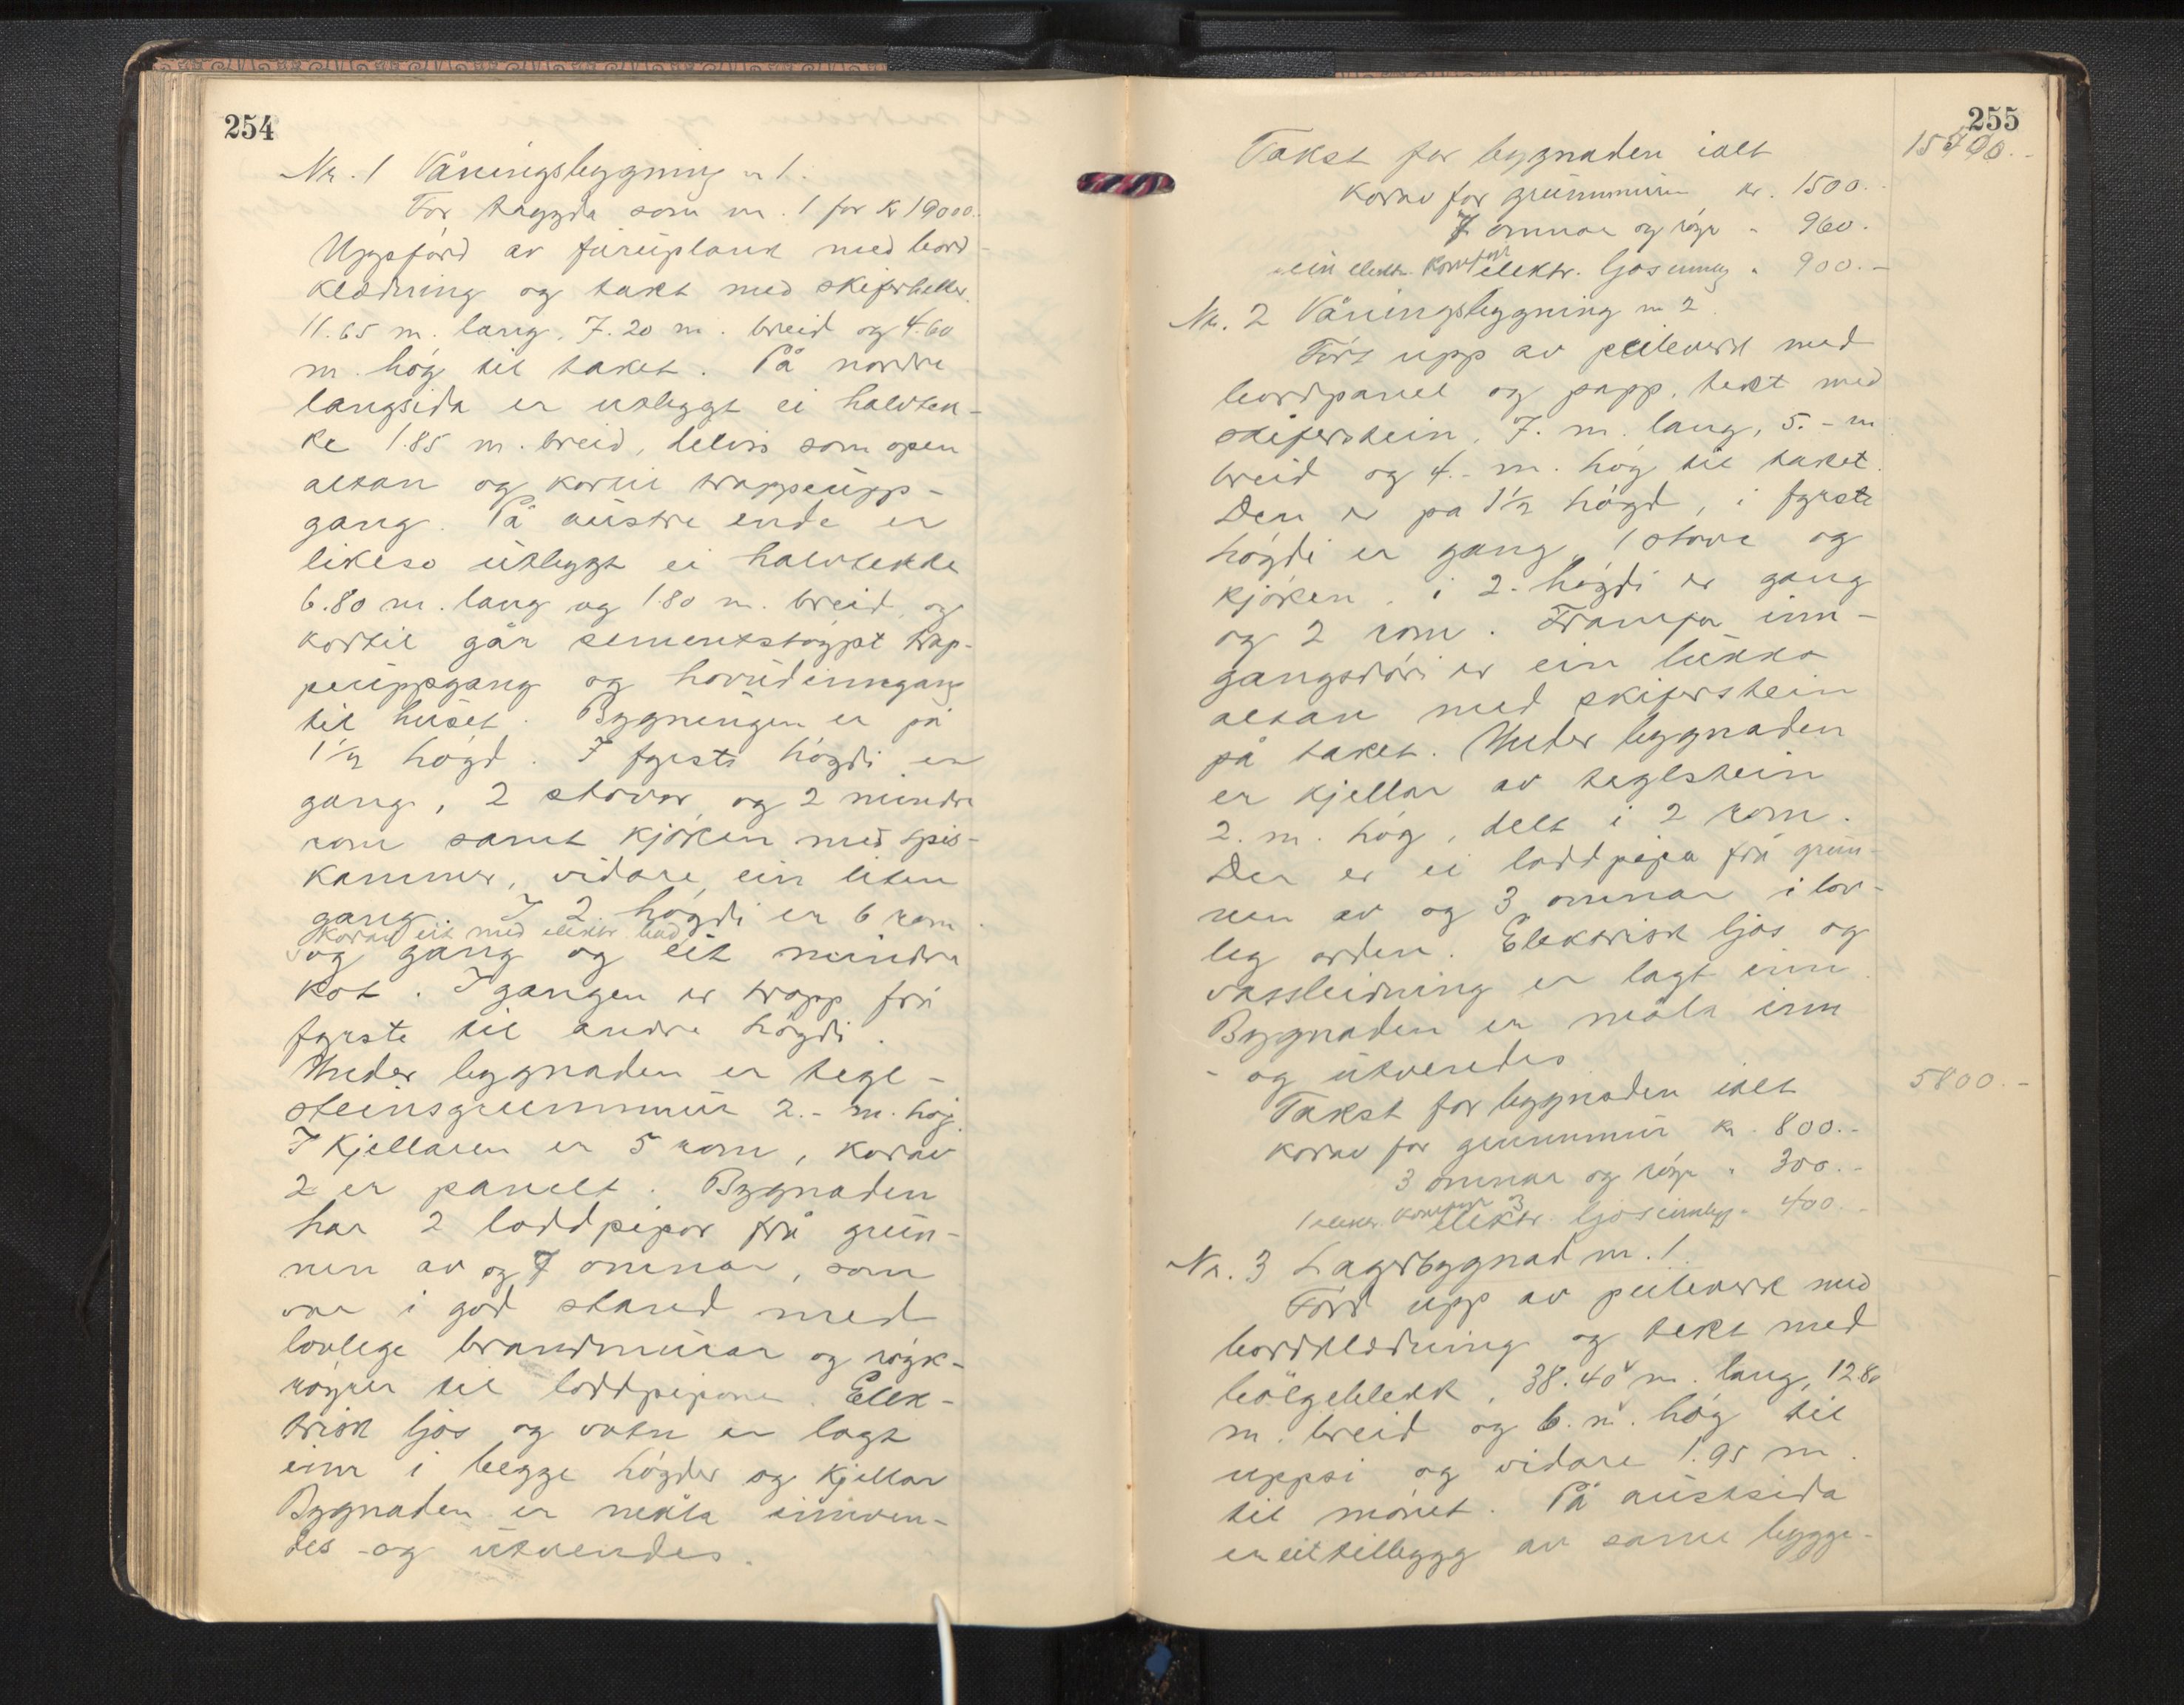 254
Nr. 1 Våningsbygning nr 1.
Før trygda som nr. 1 for kr 19000.
Uppsförd av furuplank med bord-
klædning og tækt med skiferheller.
11.65 m. lang, 7.20 m. breid og 4.60
m. høg til taket. På nordre
langsida er utbyggt ei halvtek-
ke 1.85 m. breid, delvis som open
altan og kortil trappeupp-
gang. På austre ende er
likeso utbyggt ei halvtekke
6.80 m. lang og 1.80 m. breid, og
kortil går sementstøypt trap-
peuppgang og hovudinngang
til huset. Bygningen er på
1½ høgd. I fyrste høgdi er
gang, 2 stovor og 2 mindre
rom samt kjøken med spis-
kammer, vidare ein liten
gang. I 2 høgdi er 6 rom
korav eit med elektr. bad
og gang og eit mindre
kot. I gangen er trapp frå
fyrste til andre høgdi.
Under bygnaden er tegl-
steinsgrunnmur 2.- m. høg.
I kjellaren er 5 rom, korav
2 er panelt. Bygnaden
har 2 loddpipor frå grun-
nen av og 7 omnar, som
var i god stand med
lovlege brandmurar og røyk-
røyrer til loddpiporne. Elek-
trisk ljos og vatn er lagt
inn i begge høgder og kjellar
Bygnaden er måla innven-
des -og utvendes.
255
Takst for bygnaden ialt 15400.-
korav for grunnmuren kr. 1500.-
7 omnar og røyr " 960.-
ein elektr. komfyr
elektr. ljosinnlegg " 900.-
Nr. 2 Våningsbygning nr 2.
Ført upp av peileverk med
bordpanel og papp, tekt med
skiferstein, 7. m. lang, 5.- m
breid og 4.- m. høg til taket.
Den er på 1½ høgd, i fyrste
høgdi er gang, 1 stova og
kjøken, i 2. høgdi er gang
og 2 rom. Framfor inn-
gangsdøri er ein lukka
altan med skiferstein
på taket. Under bygnaden
er kjellar av teglstein
2. m. høg, delt i 2 rom.
Der er ei loddpipa frå grun-
nen av og 3 omnar i lov-
leg orden. Elektrisk ljos og
vassleidning er lagt inn.
Bygnaden er måla inn
- og utvendes
Takst for bygnaden ialt 5800.-
korav for grunnmur kr. 800.-
3 omnar og røyr " 300.-
1 elektr. komfyr 3
elektr. ljosinnlegg " 400.-
Nr. 3 Lagerbygnad nr. 1.
Förd upp av peileverk med
bordklædning og tekt med
bölgeblekk, 38.40 m. lang, 12.80
m. breid og 6. m. høg til
uppsi og vidare 1.95 m.
til mønet. På austsida
er eit tillbygg av same bygge-